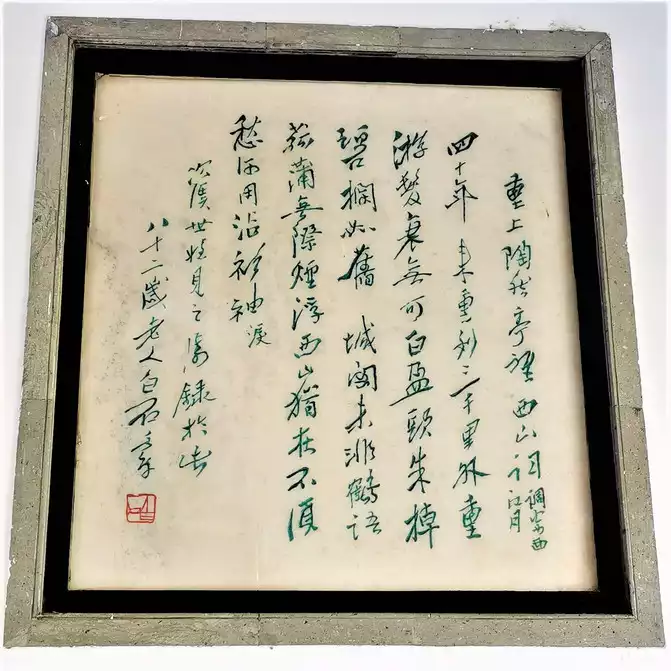 重上陶然亭望西山詞調寄西
江月
四十年來重到三千里外重
游髮衰無可白盈頭朱棹
碧欄如舊城未非鶴語
菰蒲無際煙浮西山猶在不須
愁何用沾衫袖淚
次溪世姪見之屬錄於此
八十二歲老人白石